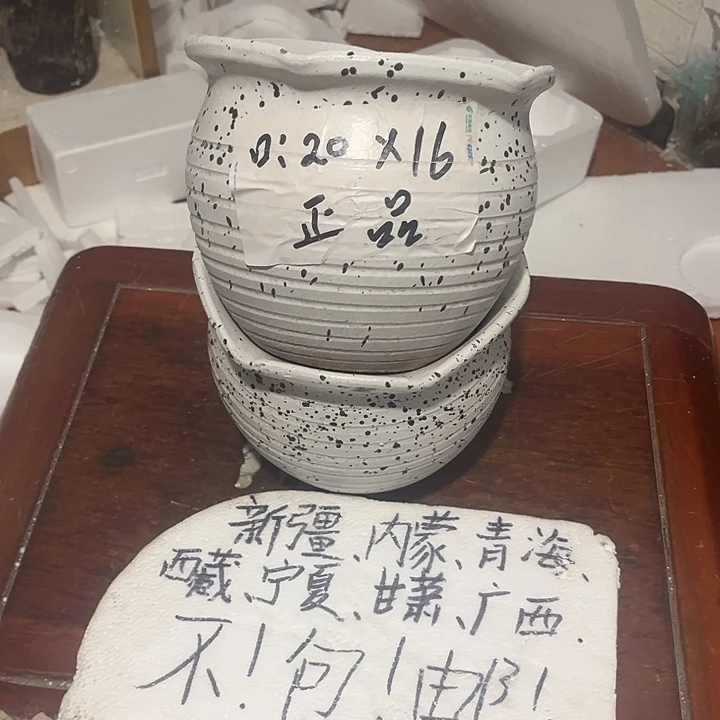 口:20×16
正品
新疆、内蒙、青海、
西藏、宁夏、甘萧、广西.
不!包!邮!